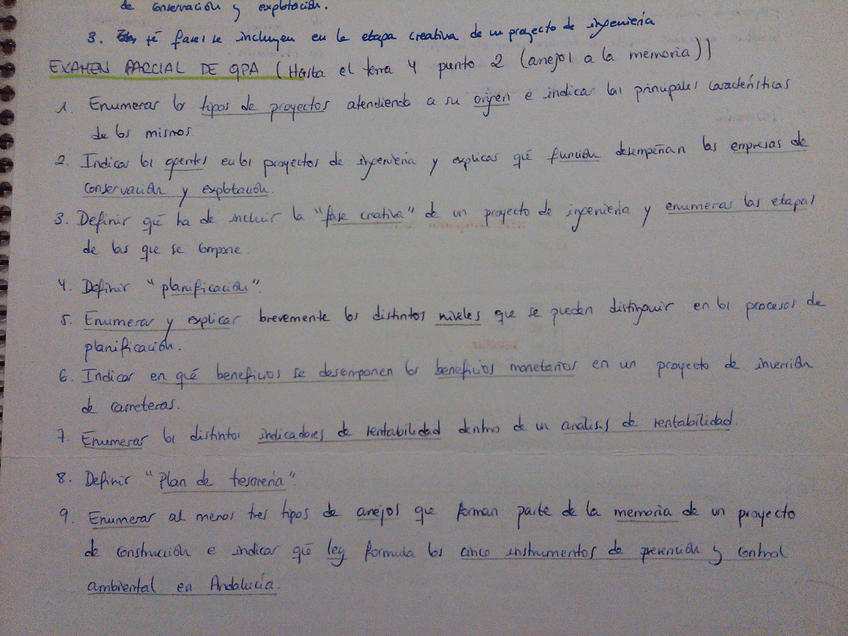 de conservación y explotación.
3. qé fases se incluyen en la etapa creativa de un proyecto de ingeniería
EXAMEN PARCIAL DE GPA (Hasta el tema 4 punto 2 (anejos a la memoria))
1. Enumerar los tipos de proyectos atendiendo a su origen e indicar las principales características
de los mismos.
2. Indicar los agentes en los proyectos de ingeniería y explicar qué función desempeñan las empresas de
conservación y explotación.
3. Definir qué ha de incluir la "fase creativa" de un proyecto de ingeniería y enumerar las etapas
de las que se compone.
4. Definir "planificación".
5. Enumerar y explicar brevemente los distintos niveles que se pueden distinguir en los procesos de
planificación.
6. Indicar en qué beneficios se descomponen los beneficios monetarios en un proyecto de inversión
de carreteras.
7. Enumerar los distintos indicadores de rentabilidad dentro de un análisis de rentabilidad.
8. Definir "Plan de tesorería".
9. Enumerar al menos tres tipos de anejos que forman parte de la memoria de un proyecto
de construcción e indicar qué ley formula los cinco instrumentos de prevención y control
ambiental en Andalucía.